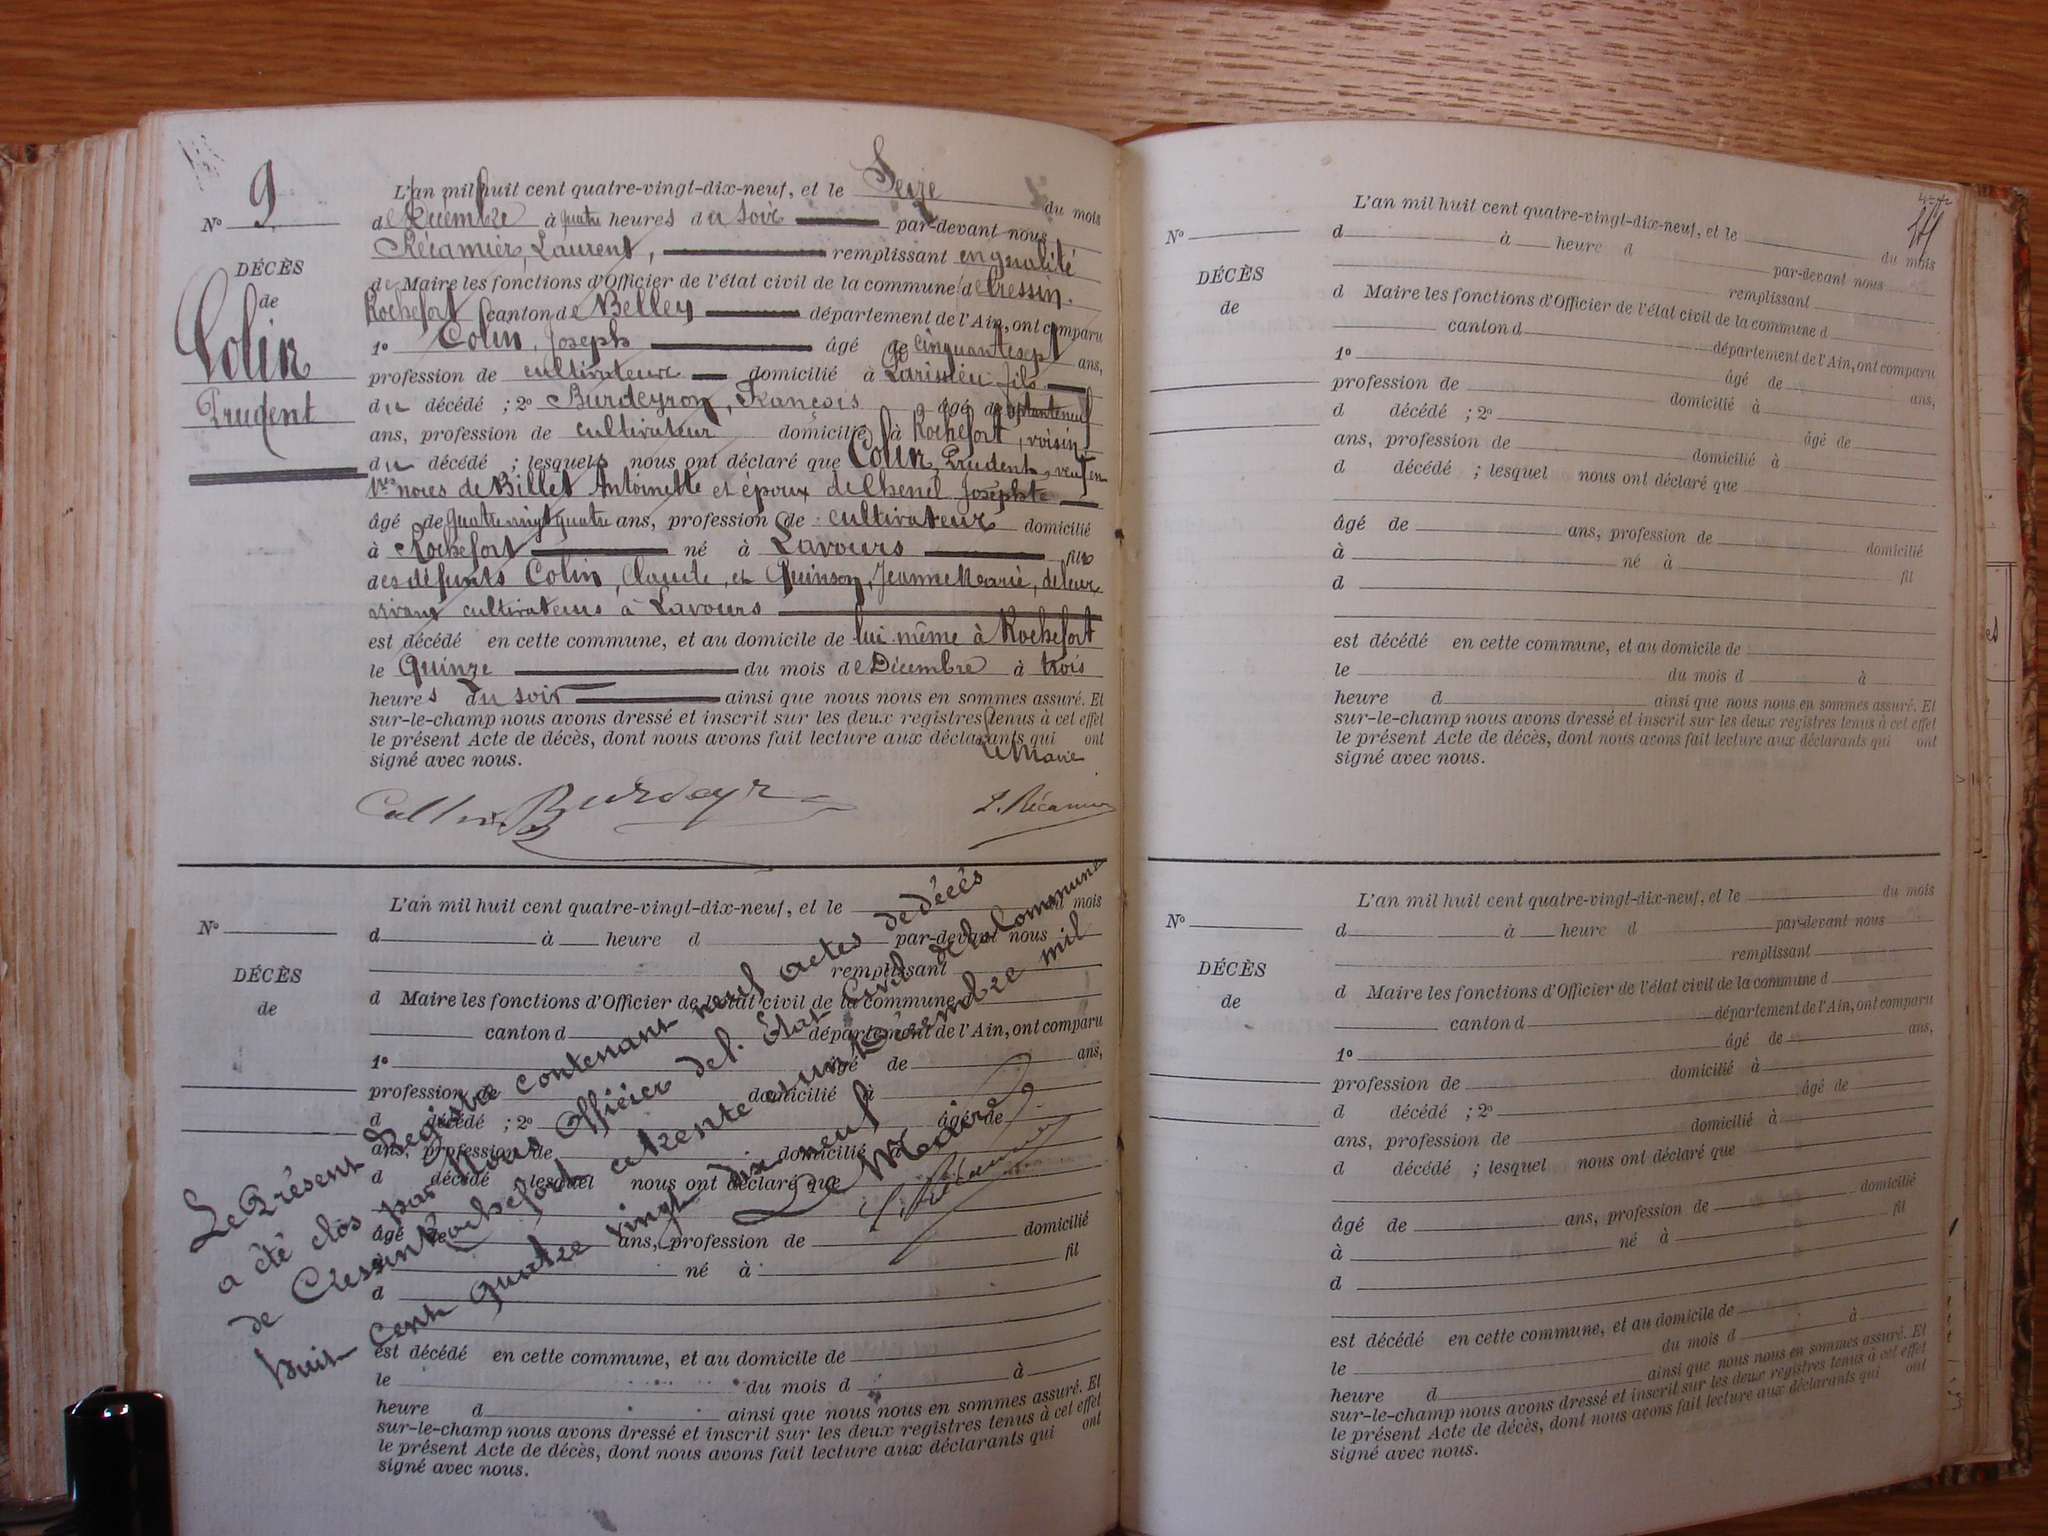 N° 9
DÉCÈS
de
Colin
Prudent
L'an mil huit cent quatre-vingt-dix-neuf, et le Seize du mois
de Décembre à quatre heures du soir par-devant nous
Récamier, Laurent, remplissant en qualité
de Maire les fonctions d'Officier de l'état civil de la commune de Cressin
Rochefort canton de Belley département de l'Ain, ont comparu
1° Colin, Joseph âgé de Cinquante sept ans,
profession de cultivateur domicilié à fils
du décédé ; 2° Burdeyron, François âgé de
ans, profession de cultivateur domicilié à Rochefort, voisin
du décédé ; lesquels nous ont déclaré que Colin, Prudent, veuf en
1res noces de Billet Antoinette et époux de Chenel Josephte
âgé de quatre vingt quatre ans, profession de cultivateur domicilié
à Rochefort né à Lavours fils
des défunts Colin, Claude, et Quinson, Jeanne Marie, de leur
vivant cultivateurs à Lavours
est décédé en cette commune, et au domicile de lui même à Rochefort
le Quinze du mois de Décembre à trois
heures du soir ainsi que nous nous en sommes assuré. Et
sur-le-champ nous avons dressé et inscrit sur les deux registres tenus à cet effet
le présent Acte de décès, dont nous avons fait lecture aux déclarants qui ont
signé avec nous.
Le Maire
Collin Burdeyr L. Récamier
N°
DÉCÈS
de
L'an mil huit cent quatre-vingt-dix-neuf, et le du mois
d à heure d par-devant nous
remplissant
d Maire les fonctions d'Officier de l'état civil de la commune d
canton d département de l'Ain, ont comparu
1° âgé de ans,
profession de domicilié à
d décédé ; 2° âgé de
ans, profession de domicilié à
d décédé ; lesquel nous ont déclaré que
âgé de ans, profession de domicilié
à né à fil
d
est décédé en cette commune, et au domicile de
le du mois d à
heure d ainsi que nous nous en sommes assuré. Et
sur-le-champ nous avons dressé et inscrit sur les deux registres tenus à cet effet
le présent Acte de décès, dont nous avons fait lecture aux déclarants qui ont
signé avec nous.
Le Présent Registre contenant neuf actes de décès
a été clos par Nous Officier de l'État Civil de la Commune
de Cressin Rochefort ce trente et un Décembre mil
huit Cent quatre vingt dix neuf
Le Maire
L. Récamier
N°
DÉCÈS
de
L'an mil huit cent quatre-vingt-dix-neuf, et le du mois
d à heure d par-devant nous
remplissant
d Maire les fonctions d'Officier de l'état civil de la commune d
canton d département de l'Ain, ont comparu
1° âgé de ans,
profession de domicilié à
d décédé ; 2° âgé de
ans, profession de domicilié à
d décédé ; lesquel nous ont déclaré que
âgé de ans, profession de domicilié
à né à fil
d
est décédé en cette commune, et au domicile de
le du mois d à
heure d ainsi que nous nous en sommes assuré. Et
sur-le-champ nous avons dressé et inscrit sur les deux registres tenus à cet effet
le présent Acte de décès, dont nous avons fait lecture aux déclarants qui ont
signé avec nous.
N°
DÉCÈS
de
L'an mil huit cent quatre-vingt-dix-neuf, et le du mois
d à heure d par-devant nous
remplissant
d Maire les fonctions d'Officier de l'état civil de la commune d
canton d département de l'Ain, ont comparu
1° âgé de ans,
profession de domicilié à
d décédé ; 2° âgé de
ans, profession de domicilié à
d décédé ; lesquel nous ont déclaré que
âgé de ans, profession de domicilié
à né à fil
d
est décédé en cette commune, et au domicile de
le du mois d à
heure d ainsi que nous nous en sommes assuré. Et
sur-le-champ nous avons dressé et inscrit sur les deux registres tenus à cet effet
le présent Acte de décès, dont nous avons fait lecture aux déclarants qui ont
signé avec nous.